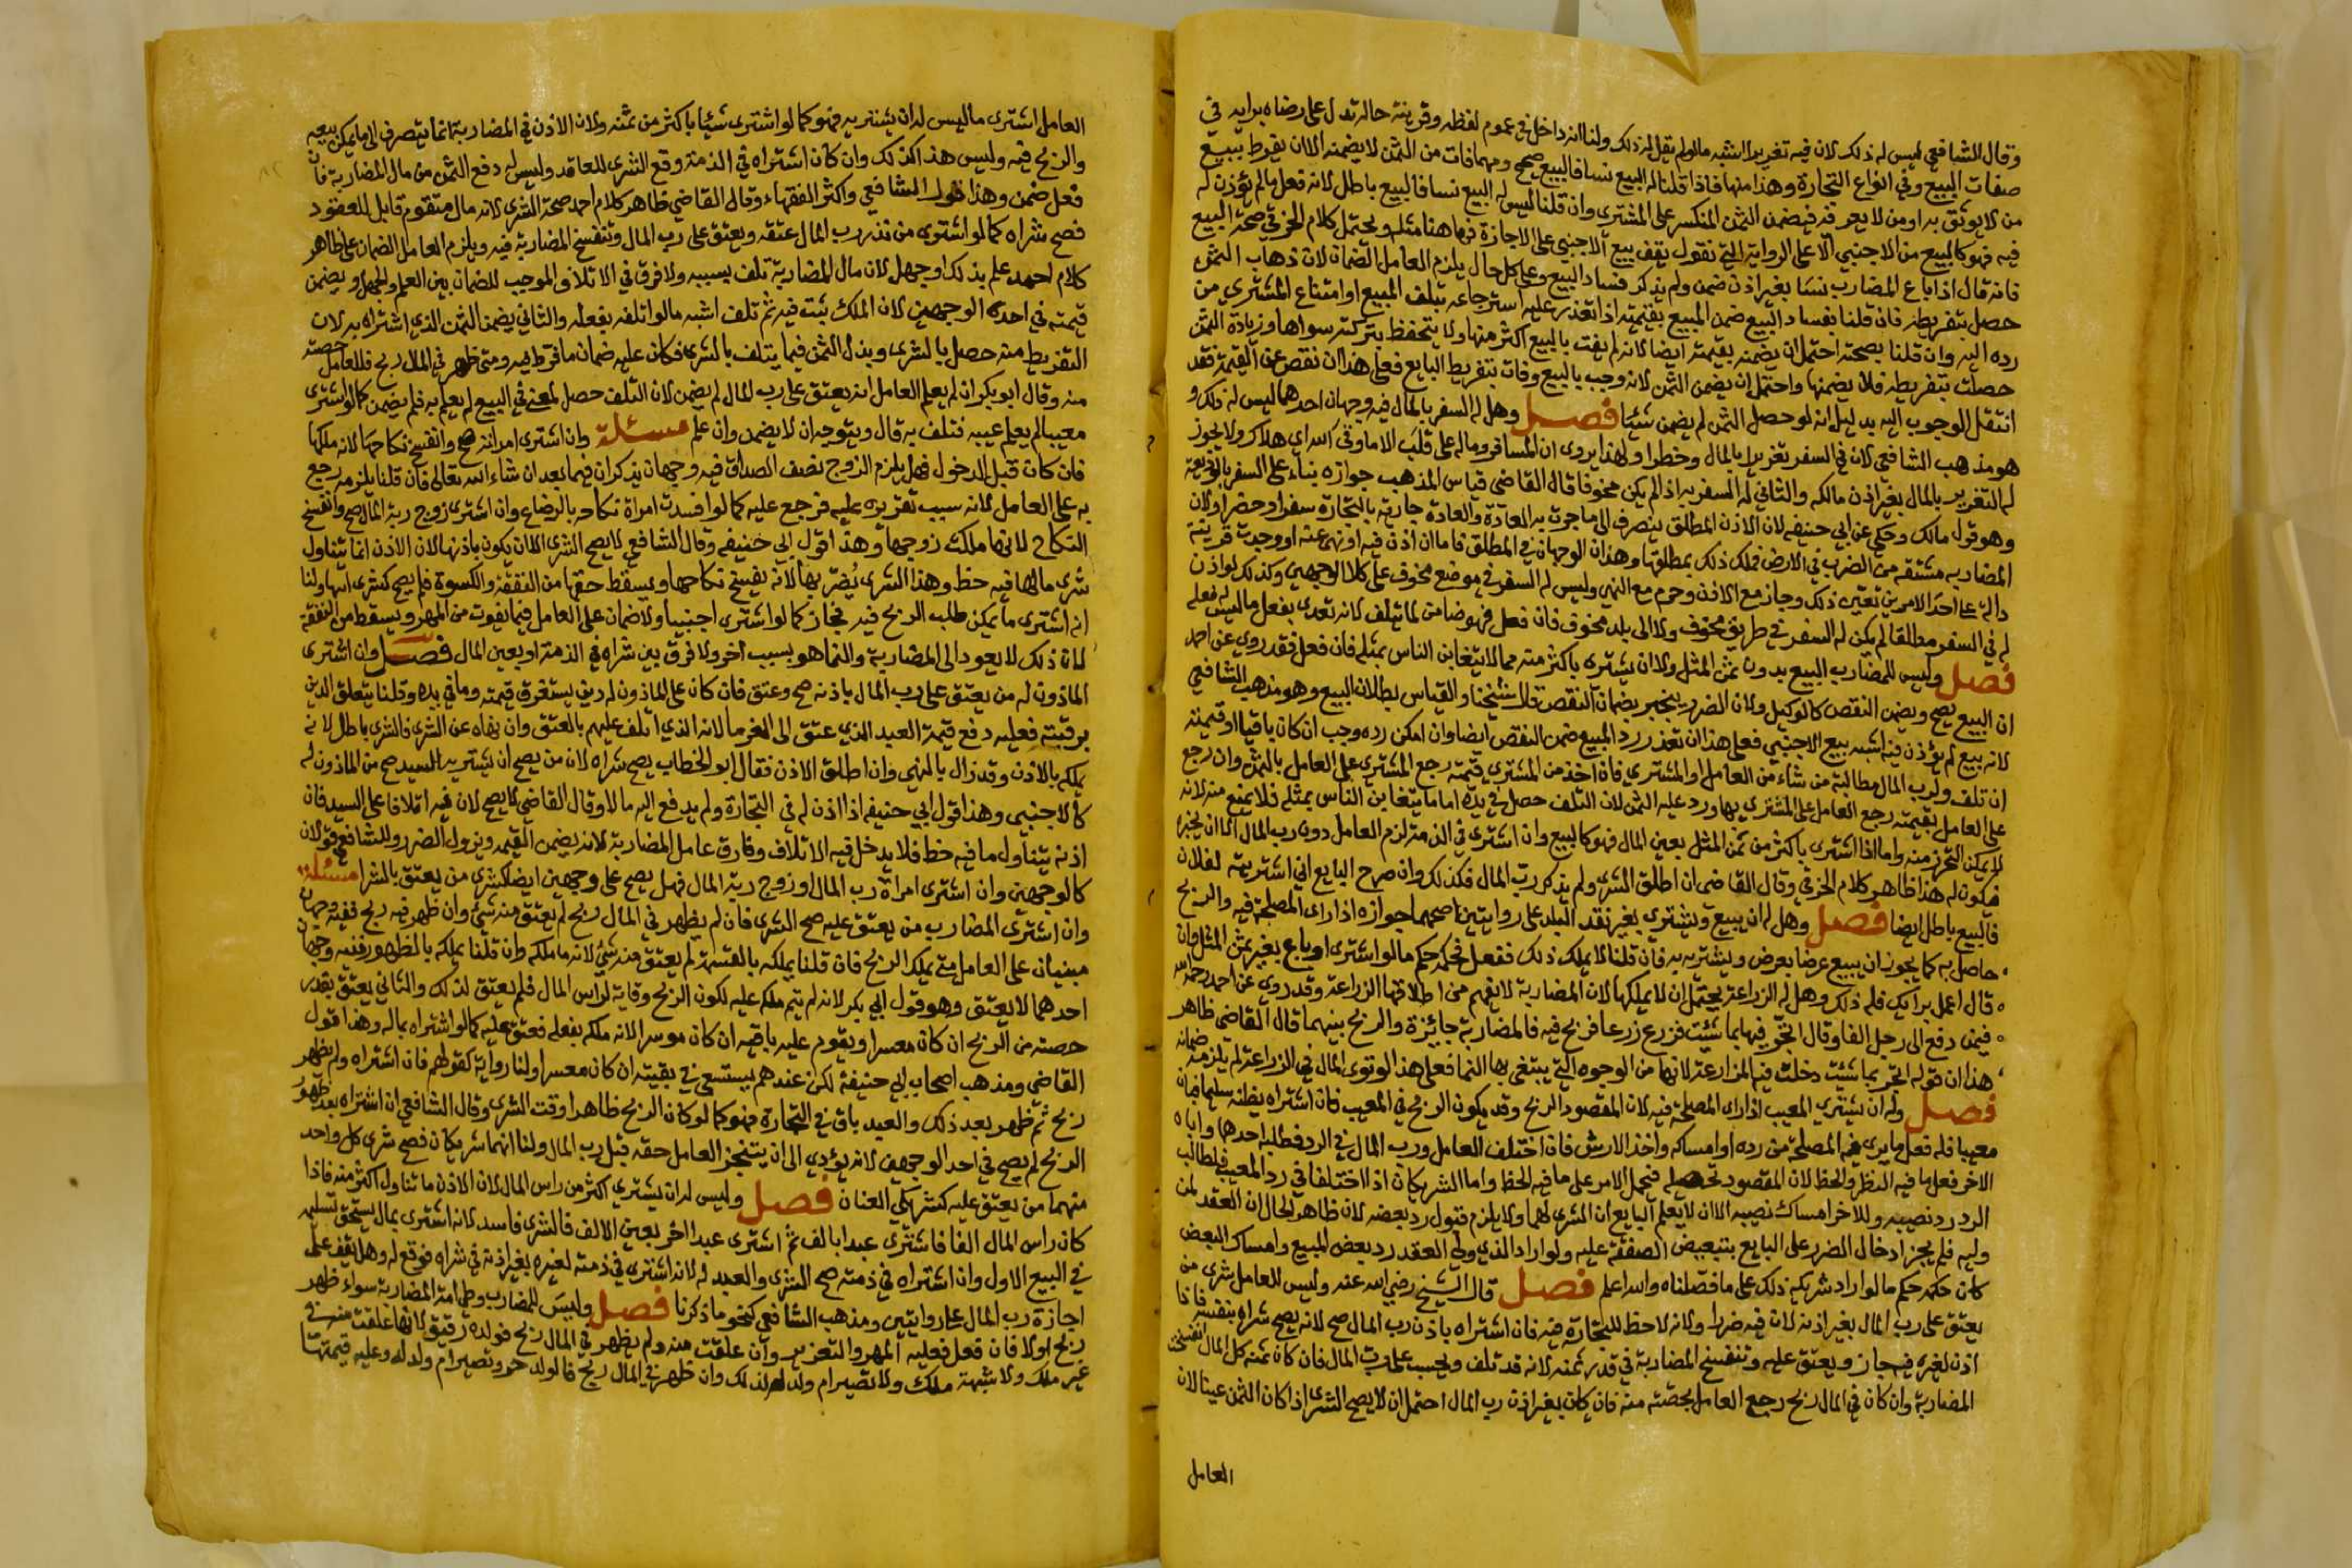 وقال الشافعي ليس له ذلك لان فيه تغريرا اشبه مالو لم يقل له ذلك ولنا انه داخل في عموم لفظه وقرينة حاله تدل على رضاه برايه في
صفات البيع وفي انواع التجارة وهذا منها فاذا قلنا له البيع نسا فالبيع صحيح ومهما فات من الثمن لا يضمنه الا ان يفرط ببيع
من لا يوثق به او من لا يعرفه فيضمن الثمن المنكسر على المشتري وان قلنا ليس له البيع نسا فالبيع باطل لانه فعل ما لم يؤذن له
فيه فهو كالبيع من الاجنبي الا على الرواية التي نقول يقف بيع الاجنبي على الاجازة فهاهنا مثله ويحتمل كلام الخرقي صحة البيع
فانه قال اذا باع المضارب نسا بغير اذن ضمن ولم يذكر فساد البيع وعلى كل حال يلزم العامل الضمان لان ذهاب الثمن
حصل بتفريطه فان قلنا بفساد البيع ضمن المبيع بقيمته اذا تعذر عليه استرجاعه بتلف المبيع او امتناع المشتري من
رده اليه وان قلنا بصحته احتمل ان يضمنه بقيمته ايضا لانه لم يفت بالبيع اكثر منها ولا يتحفظ بتركه سواها وزيادة الثمن
حصلت بتفريطه فلا يضمنها واحتمل ان يضمن الثمن لانه وجب بالبيع وفات بتفريط البايع فعلى هذا ان نقص عن القيمة فقد
انتقل الوجوب اليه بدليل انه لو حصل الثمن لم يضمن شيئا فصل وهل له السفر بالمال فيه وجهان احدهما ليس له ذلك و
هو مذهب الشافعي لان في السفر تغريرا بالمال وخطرا ولهذا يروى ان المسافر وماله على قلت الا ما وقى الله اي هلاك ولا يجوز
له التغرير بالمال بغير اذن مالكه والثاني له السفر به اذا لم يكن مخوفا قال القاضي قياس المذهب جوازه بناء على السفر بالوديعة
وهو قول مالك وحكي عن ابي حنيفه لان الاذن المطلق ينصرف الى ما جرت به العادة والعادة جارية بالتجارة سفرا وحضرا ولان
المضاربه مشتقه من الضرب في الارض فملك ذلك بمطلقها وهذان الوجهان في المطلق فاما ان اذن فيه او نهى عنه او وجدت قرينة
دالة على احد الامرين تعين ذلك وجاز مع الاذن وحرم مع النهي وليس له السفر في موضع مخوف على كلا الوجهين وكذلك لو اذن
له في السفر مطلقا لم يكن له السفر في طريق مخوف ولا الى بلد مخوف فان فعل فهو ضامن لما يتلف لانه تعدى بفعل ما ليس له فعله
فصل وليس للمضارب البيع بدون ثمن المثل ولا ان يشتري باكثر منه مما لا يتغابن الناس بمثله فان فعل فقد روي عن احمد
ان البيع يصح ويضمن النقص كالوكيل ولان الضرر ينجبر بضمان النقص قال شيخنا والقياس بطلان البيع وهو مذهب الشافعي
لانه بيع لم يؤذن فيه اشبه بيع الاجنبي فعلى هذا ان تعذر رد المبيع ضمن النقص ايضا وان امكن رده وجب ان كان باقيا او قيمته
ان تلف ولرب المال مطالبة من شاء من العامل او المشتري فان اخذ من المشتري قيمته رجع المشتري على العامل بالثمن وان رجع
على العامل بقيمته رجع العامل على المشتري بها ورد عليه الثمن لان التلف حصل في يده اما ما يتغابن الناس بمثله فلا يمنع منه لانه
لا يمكن التحرز منه واما اذا اشترى باكثر من ثمن المثل بعين المال فهو كالبيع وان اشترى في الذمة لزم العامل دون رب المال الا ان يجيزه
فيكون له هذا ظاهر كلام الخرقي وقال القاضي ان اطلق الشرى ولم يذكر رب المال فكذلك وان صرح البايع اني اشتريته لفلان
فالبيع باطل ايضا فصل وهل له ان يبيع ويشتري بغير نقد البلد على روايتين اصحهما جوازه اذا راى المصلحة فيه والربح
حاصل به كما يجوز ان يبيع عرضا بعرض ويشتريه به فان قلنا لا يملك ذلك ففعل فحكمه حكم ما لو اشترى او باع بغير ثمن المثل وان
قال اعمل برايك فله ذلك وهل له الزراعة يحتمل ان لا يملكها لان المضاربة لا يفهم من اطلاقها الزراعة وقد روي عن احمد رحمه الله
فيمن دفع الى رجل الفا وقال اتجر فيها بما شئت فزرع زرعا فربح فيه فالمضاربة جايزة والربح بينهما قال القاضي ظاهر
هذا ان قوله اتجر بما شئت دخلت فيه المزارعة لانها من الوجوه التي يبتغى بها النما فعلى هذا لو توى المال في الزراعة لم يلزمه ضمانه
فصل وله ان يشتري المعيب اذا راى المصلحة فيه لان المقصود الربح وقد يكون الربح في المعيب فان اشتراه يظنه سليما فبان
معيبا فله فعل ما يرى فيه المصلحة من رده او امساكه واخذ الارش فان اختلف العامل ورب المال في الرد فطلبه احدهما واباه
الاخر فعل ما فيه النظر والحظ لان المقصود تحصيله فيحمل الامر على ما فيه الحظ واما الشريكان اذا اختلفا في رد المعيب فلطالب
الرد رد نصيبه وللاخر امساك نصيبه الا ان لا يعلم البايع ان الشرى لهما ولا يلزم قبول رد بعضه لان ظاهر الحال ان العقد لمن
وليه فلم يجز ادخال الضرر على البايع بتبعيض الصفقة عليه ولو اراد الذي ولي العقد رد بعض المبيع وامساك البعض
كان حكمه حكم ما لو اراد شريكه ذلك على ما فصلناه والله اعلم فصل قال الشيخ رضي الله عنه وليس للعامل شرى من
يعتق على رب المال بغير اذنه لان فيه ضررا ولانه لا حظ للتجارة فيه فان اشتراه باذن رب المال صح لانه يصح شراه بنفسه فاذا
اذن لغيره فيه جاز ويعتق عليه وتنفسخ المضاربة في قدر ثمنه لانه قد تلف ويحسب على رب المال فان كان ثمنه كل المال انفسخت
المضاربة وان كان في المال ربح رجع العامل بحصته منه فان كان بغير اذن رب المال احتمل ان لا يصح الشرى اذا كان الثمن عينا لان
العامل
العامل اشترى ما ليس له ان يشتريه فهو كما لو اشترى شيئا باكثر من ثمنه ولان الاذن في المضاربة انما يتصرف الى ما يمكن بيعه
والربح فيه وليس هذا كذلك وان كان اشتراه في الذمة وقع الشرى للعاقد وليس له دفع الثمن من مال المضاربة فان
فعل ضمن وهذا قول الشافعي واكثر الفقهاء وقال القاضي ظاهر كلام احمد صحة الشرى لانه مال متقوم قابل للعقود
فصح شراه كما لو اشترى من نذر رب المال عتقه ويعتق على رب المال وتنفسخ المضاربة فيه ويلزم العامل الضمان على ظاهر
كلام احمد علم بذلك او جهل لان مال المضاربة تلف بسببه ولا فرق في الاتلاف الموجب للضمان بين العلم والجهل ويضمن
قيمته في احد الوجهين لان الملك ثبت فيه ثم تلف اشبه مالو اتلفه بفعله والثاني يضمن الثمن الذي اشتراه به لان
التفريط منه حصل بالشرى وبذل الثمن فيما يتلف بالشرى فكان عليه ضمان ما فرط فيه ومتى ظهر في المال ربح فللعامل حصته
منه وقال ابو بكر ان لم يعلم العامل انه يعتق على رب المال لم يضمن لان التلف حصل لمعنى في البيع لم يعلم به فلم يضمن كما لو اشترى
معيبا لم يعلم عيبه فتلف به قال ويتوجه ان لا يضمن وان علم مسئلة وان اشترى امراته صح وانفسخ نكاحها لانه ملكها
فان كان قبل الدخول فهل يلزم الزوج نصف الصداق فيه وجهان يذكران فيما بعد ان شاء الله تعالى فان قلنا يلزمه رجع
به على العامل لانه سبب تقريره عليه فرجع عليه كما لو افسدت امراة نكاحه بالرضاع وان اشترى زوج ربة المال صح وانفسخ
النكاح لانها ملكت زوجها وهذا قول ابي حنيفه وقال الشافعي لا يصح الشرى الا ان يكون باذنها لان الاذن انما يتناول
شرى ما لها فيه حظ وهذا الشرى يضر بها لانه يفسخ نكاحها ويسقط حقها من النفقة والكسوة فلم يصح كشرى ابنها ولنا
انه اشترى ما يمكن طلب الربح فيه فجاز كما لو اشترى اجنبيا ولا ضمان على العامل فيما يفوت من المهر ويسقط من النفقة
لان ذلك لا يعود الى المضاربة وانما هو بسبب اخر ولا فرق بين شراه في الذمة او بعين المال فصل وان اشترى
الماذون له من يعتق على رب المال باذنه صح وعتق فان كان على الماذون له دين يستغرق قيمته وما في يده وقلنا يتعلق الدين
برقبته فعليه دفع قيمة العبد الذي عتق الى الغرما لانه الذي اتلف عليهم بالعتق وان نهاه عن الشرى فالشرى باطل لانه
يملكه بالاذن وقد زال بالنهي وان اطلق الاذن فقال ابو الخطاب يصح شراه لان من يصح ان يشتريه السيد صح من الماذون له
كالاجنبي وهذا قول ابي حنيفه اذا اذن له في التجارة ولم يدفع اليه مالا وقال القاضي لا يصح لان فيه اتلافا على السيد فان
اذنه يتناول ما فيه حظ فلا يدخل فيه الاتلاف وفارق عامل المضاربة لانه يضمن القيمه ويزول الضرر وللشافعي قولان
كالوجهين وان اشترى امراة رب المال او زوج ربة المال فهل يصح على وجهين ايضا كشرى من يعتق بالشرا مسئلة
وان اشترى المضارب من يعتق عليه صح الشرى فان لم يظهر في المال ربح لم يعتق منه شيء وان ظهر فيه ربح ففيه وجهان
مبنيان على العامل متى يملك الربح فان قلنا يملكه بالقسمة لم يعتق منه شيء لانه ما ملكه وان قلنا يملكه بالظهور ففيه وجهان
احدهما لا يعتق وهو قول ابي بكر لانه لم يتم ملكه عليه لكون الربح وقاية لراس المال فلم يعتق لذلك والثاني يعتق بقدر
حصته من الربح ان كان معسرا ويقوم عليه باقيه ان كان موسرا لانه ملكه بفعله فعتق عليه كما لو اشتراه بماله وهذا قول
القاضي ومذهب اصحاب ابي حنيفة لكن عندهم يستسعى في بقيته ان كان معسرا ولنا رواية كقولهم فان اشتراه ولم يظهر
ربح ثم ظهر بعد ذلك والعبد باق في التجارة فهو كما لو كان الربح ظاهرا وقت الشرى وقال الشافعي ان اشتراه بعد ظهور
الربح لم يصح في احد الوجهين لانه يؤدي الى ان يتنجز العامل حقه قبل رب المال ولنا انهما شريكان فصح شرى كل واحد
منهما من يعتق عليه كشريكي العنان فصل وليس له ان يشتري اكثر من راس المال لان الاذن ما تناول اكثر منه فاذا
كان راس المال الفا فاشترى عبدا بالف ثم اشترى عبدا اخر بعين الالف فالشرى فاسد لانه اشترى بمال يستحق تسليمه
في البيع الاول وان اشتراه في ذمته صح الشرى والعبد له لانه اشترى في ذمته لغيره بغير اذنه في شراه فوقع له وهل يقف على
اجازة رب المال على روايتين ومذهب الشافعي كنحو ما ذكرنا فصل وليس للمضارب وطي امة المضاربة سواء ظهر
ربح او لا فان فعل فعليه المهر والتعزير وان علقت منه ولم يظهر في المال ربح فولده رقيق لانها علقت منه في
غير ملك ولا شبهة ملك ولا تصير ام ولد له لذلك وان ظهر في المال ربح فالولد حر وتصير ام ولد له وعليه قيمتها